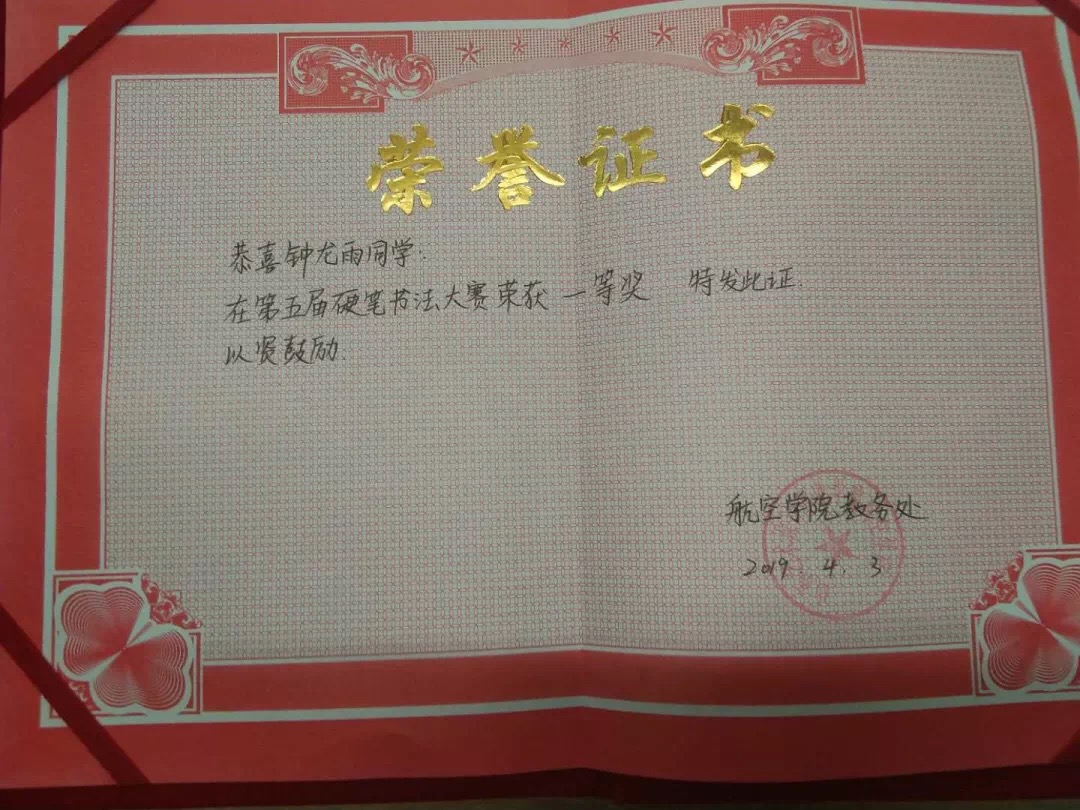 荣誉证书
恭喜钟龙雨同学:
在第五届硬笔书法大赛荣获 一等奖 特发此证.
以资鼓励.
航空学院教务处
2019. 4. 3